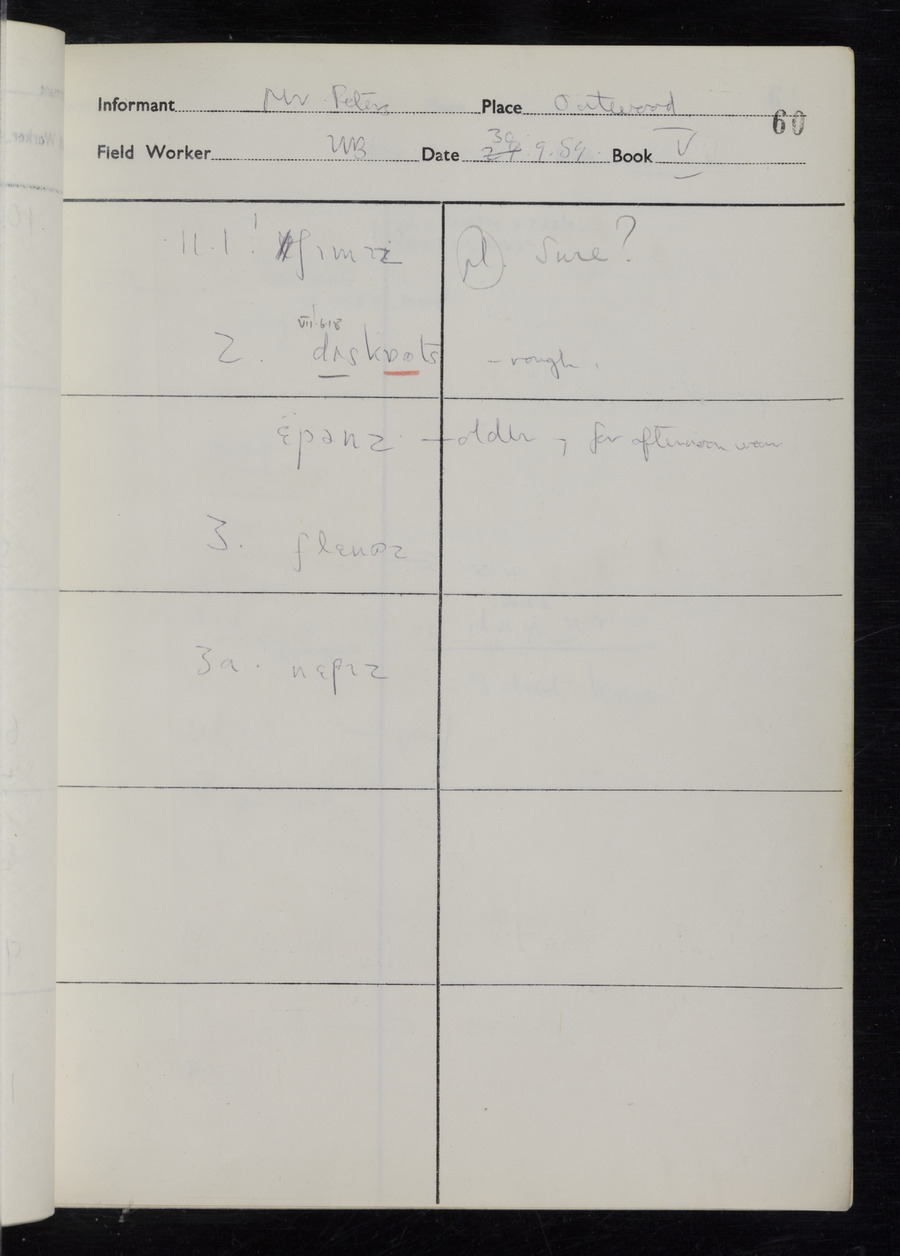 Informant Mr Peters Place Outwood
60
Field Worker WB Date 30 24.9.59. Book V
11.1 ʃɪmɪz pl. Sure?
VII.6.18
2. dɪʃkɒəts – rough.
ɛpənz – older, for afternoon wear
3. ʃlɛnəz
3a. nɛpɪz